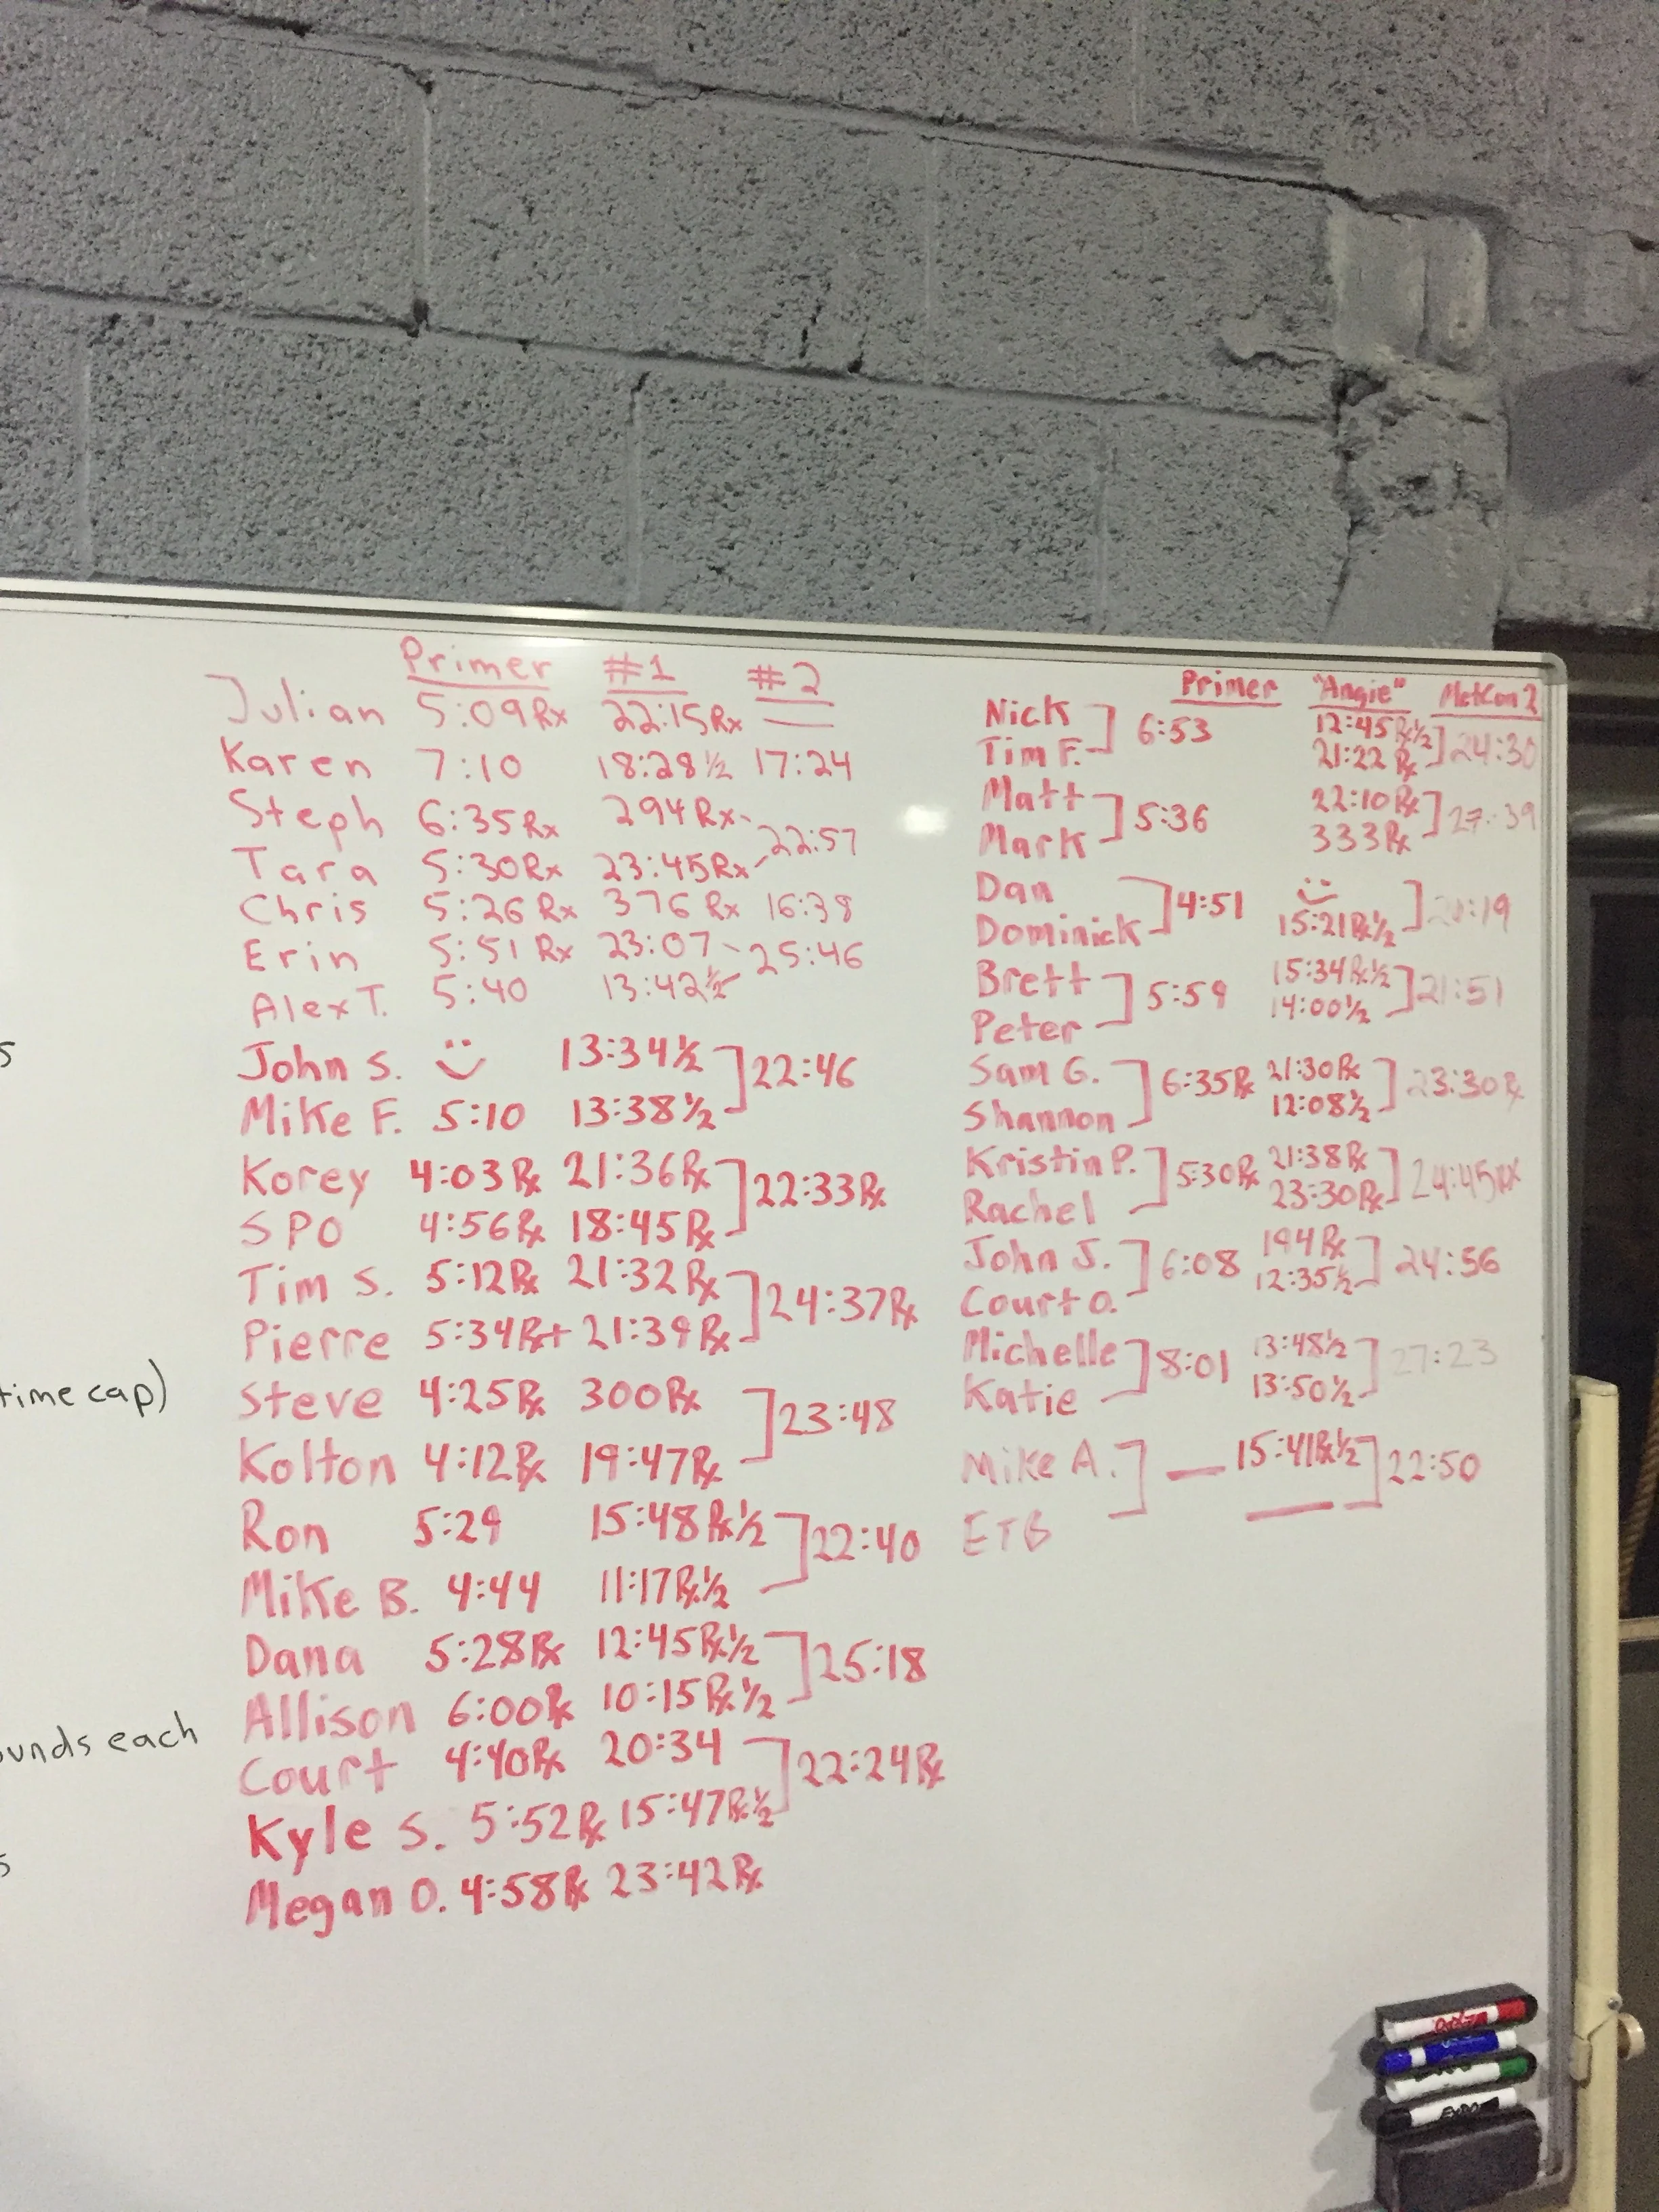 Primer #1 #2
Julian 5:09Rx 22:15Rx —
Karen 7:10 18:28 ½ 17:24
Steph 6:35Rx 294Rx
22:57
Tara 5:30Rx 23:45Rx
Chris 5:26Rx 376Rx 16:38
Erin 5:51Rx 23:07 25:46
Alex T. 5:40 13:42½
John S. 13:34½
22:46
Mike F. 5:10 13:38½
Korey 4:03Rx 21:36Rx
22:33Rx
SPO 4:56Rx 18:45Rx
Tim S. 5:12Rx 21:32Rx
24:37Rx
Pierre 5:34Rx+ 21:39Rx
Steve 4:25Rx 300Rx
23:48
Kolton 4:12Rx 19:47Rx
Ron 5:29 15:48Rx½
22:40
Mike B. 4:44 11:17Rx½
Dana 5:28Rx 12:45Rx½
25:18
Allison 6:00Rx 10:15Rx½
Court 4:40Rx 20:34
22:24Rx
Kyle S. 5:52Rx 15:47Rx½
Megan O. 4:58Rx 23:42Rx
Primer "Angie" MetCon 2
Nick 12:45Rx½
6:53 24:30
Tim F. 21:22Rx
Matt 22:10Rx
5:36 27:39
Mark 333Rx
Dan
4:51
Dominick 15:21Rx½
Brett 15:34Rx½
5:59 21:51
Peter 14:00½
Sam G. 21:30Rx
6:35Rx 23:30Rx
Shannon 12:08½
Kristin P. 21:38Rx
5:30Rx 24:45Rx
Rachel 23:30Rx
John J. 194Rx
6:08 24:56
Court O. 12:35½
Michelle 13:48½
8:01 27:23
Katie 13:50½
Mike A. — 15:41Rx½
22:50
ETB —
s
time cap)
unds each
s
EXPO